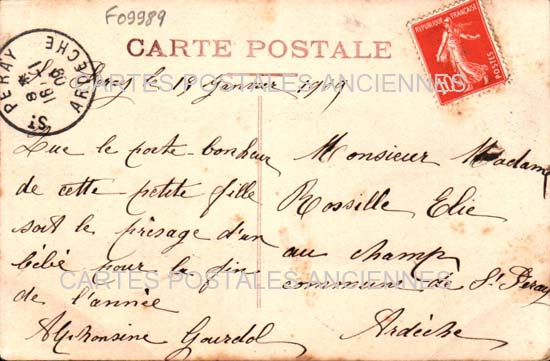 F09989
CARTE POSTALE
RÉPUBLIQUE FRANÇAISE
10
POSTES
ST PERAY
ARDÈCHE
CARTES POSTALES ANCIENNES
St Péray le 19 Janvier 1909
Que le porte-bonheur
de cette petite fille
soit le présage d'un
bébé pour la fin
de l'année
Alphonsine Gourdol
Monsieur Madame
Rossille Elie
au champ
commune de St Péray
Ardèche
CARTES POSTALES ANCIENNES